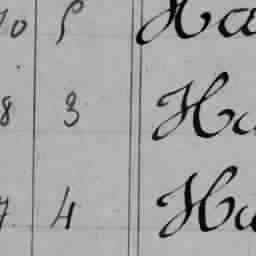 10 5 Ha
8 3 Ha
7 4 Ha